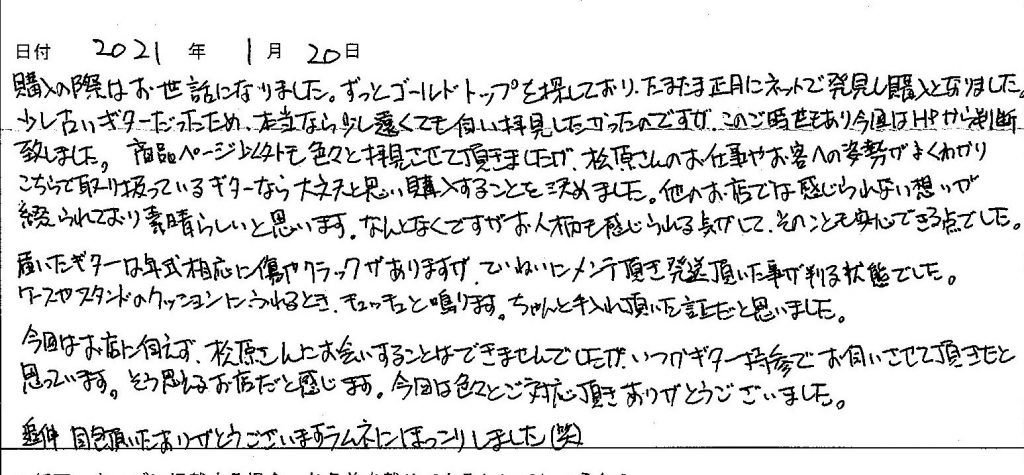 日付 2021 年 1 月 20 日
購入の際はお世話になりました。ずっとゴールドトップを探しており、たまたま正月にネットで発見し購入となりました。
少し古いギターだったため、本当なら少し遠くても伺い拝見したかったのですが、このご時世もあり今回はHPから判断
致しました。商品ページ以外も色々と拝見させて頂きましたが、松原さんのお仕事やお客への姿勢がよくわかり
こちらで取り扱っているギターなら大丈夫と思い購入することを決めました。他のお店では感じられない想いが
綴られており素晴らしいと思います。なんとなくですがお人柄も感じられる気がして、そのことも安心できる点でした。
届いたギターは年式相応に傷やクラックがありますが、ていねいにメンテ頂き発送頂いた事が判る状態でした。
ケースやスタンドのクッションにふれるとき、キュッキュと鳴ります。ちゃんと手入れ頂いた証だと思いました。
今回はお店に伺えず、松原さんにお会いすることはできませんでしたが、いつかギター持参でお伺いさせて頂きたいと
思っています。そう思えるお店だと感じます。今回は色々とご対応頂きありがとうございました。
頂いたありがとうございますラムネにほっこりしました(笑)